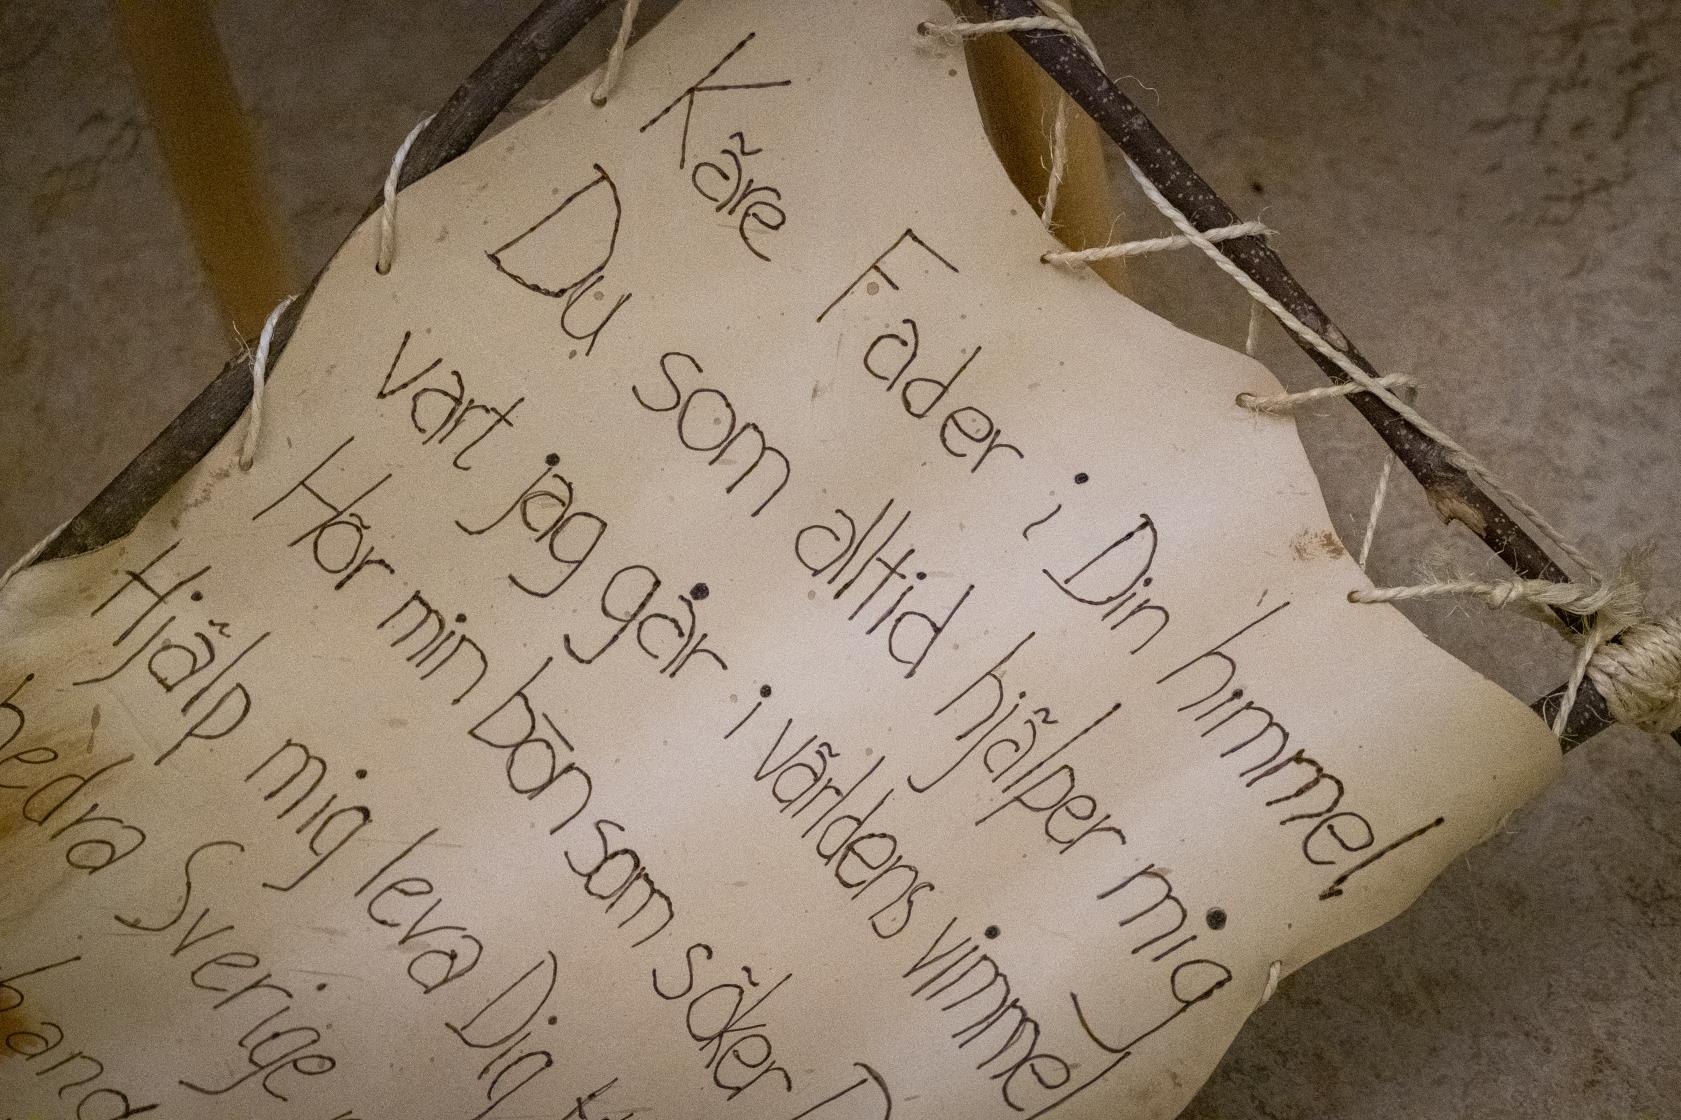 Käre Fader i Din himmel
Du som alltid hjälper mig
vart jag går i världens vimmel
Hör min bön som söker
Hjälp mig leva Dig
bedra Sverige
hand